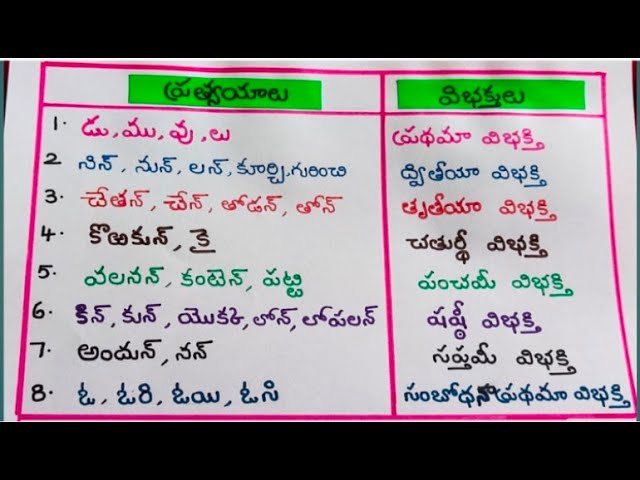 ప్రత్యయాలు విభక్తులు
1. డు, ము, వు, లు ప్రథమా విభక్తి
2 నిన్, నున్, లన్, కూర్చి, గురించి ద్వితీయా విభక్తి
3. చేతన్, చేన్, తోడన్, తోన్ తృతీయా విభక్తి
4. కొఱకున్, కై చతుర్థీ విభక్తి
5. వలనన్, కంటెన్, పట్టి పంచమీ విభక్తి
6. కిన్, కున్, యొక్క, లోన్, లోపలన్ షష్ఠీ విభక్తి
7. అందున్, నన్ సప్తమీ విభక్తి
8. ఓ, ఓరి, ఓయి, ఓసి సంబోధనా ప్రథమా విభక్తి